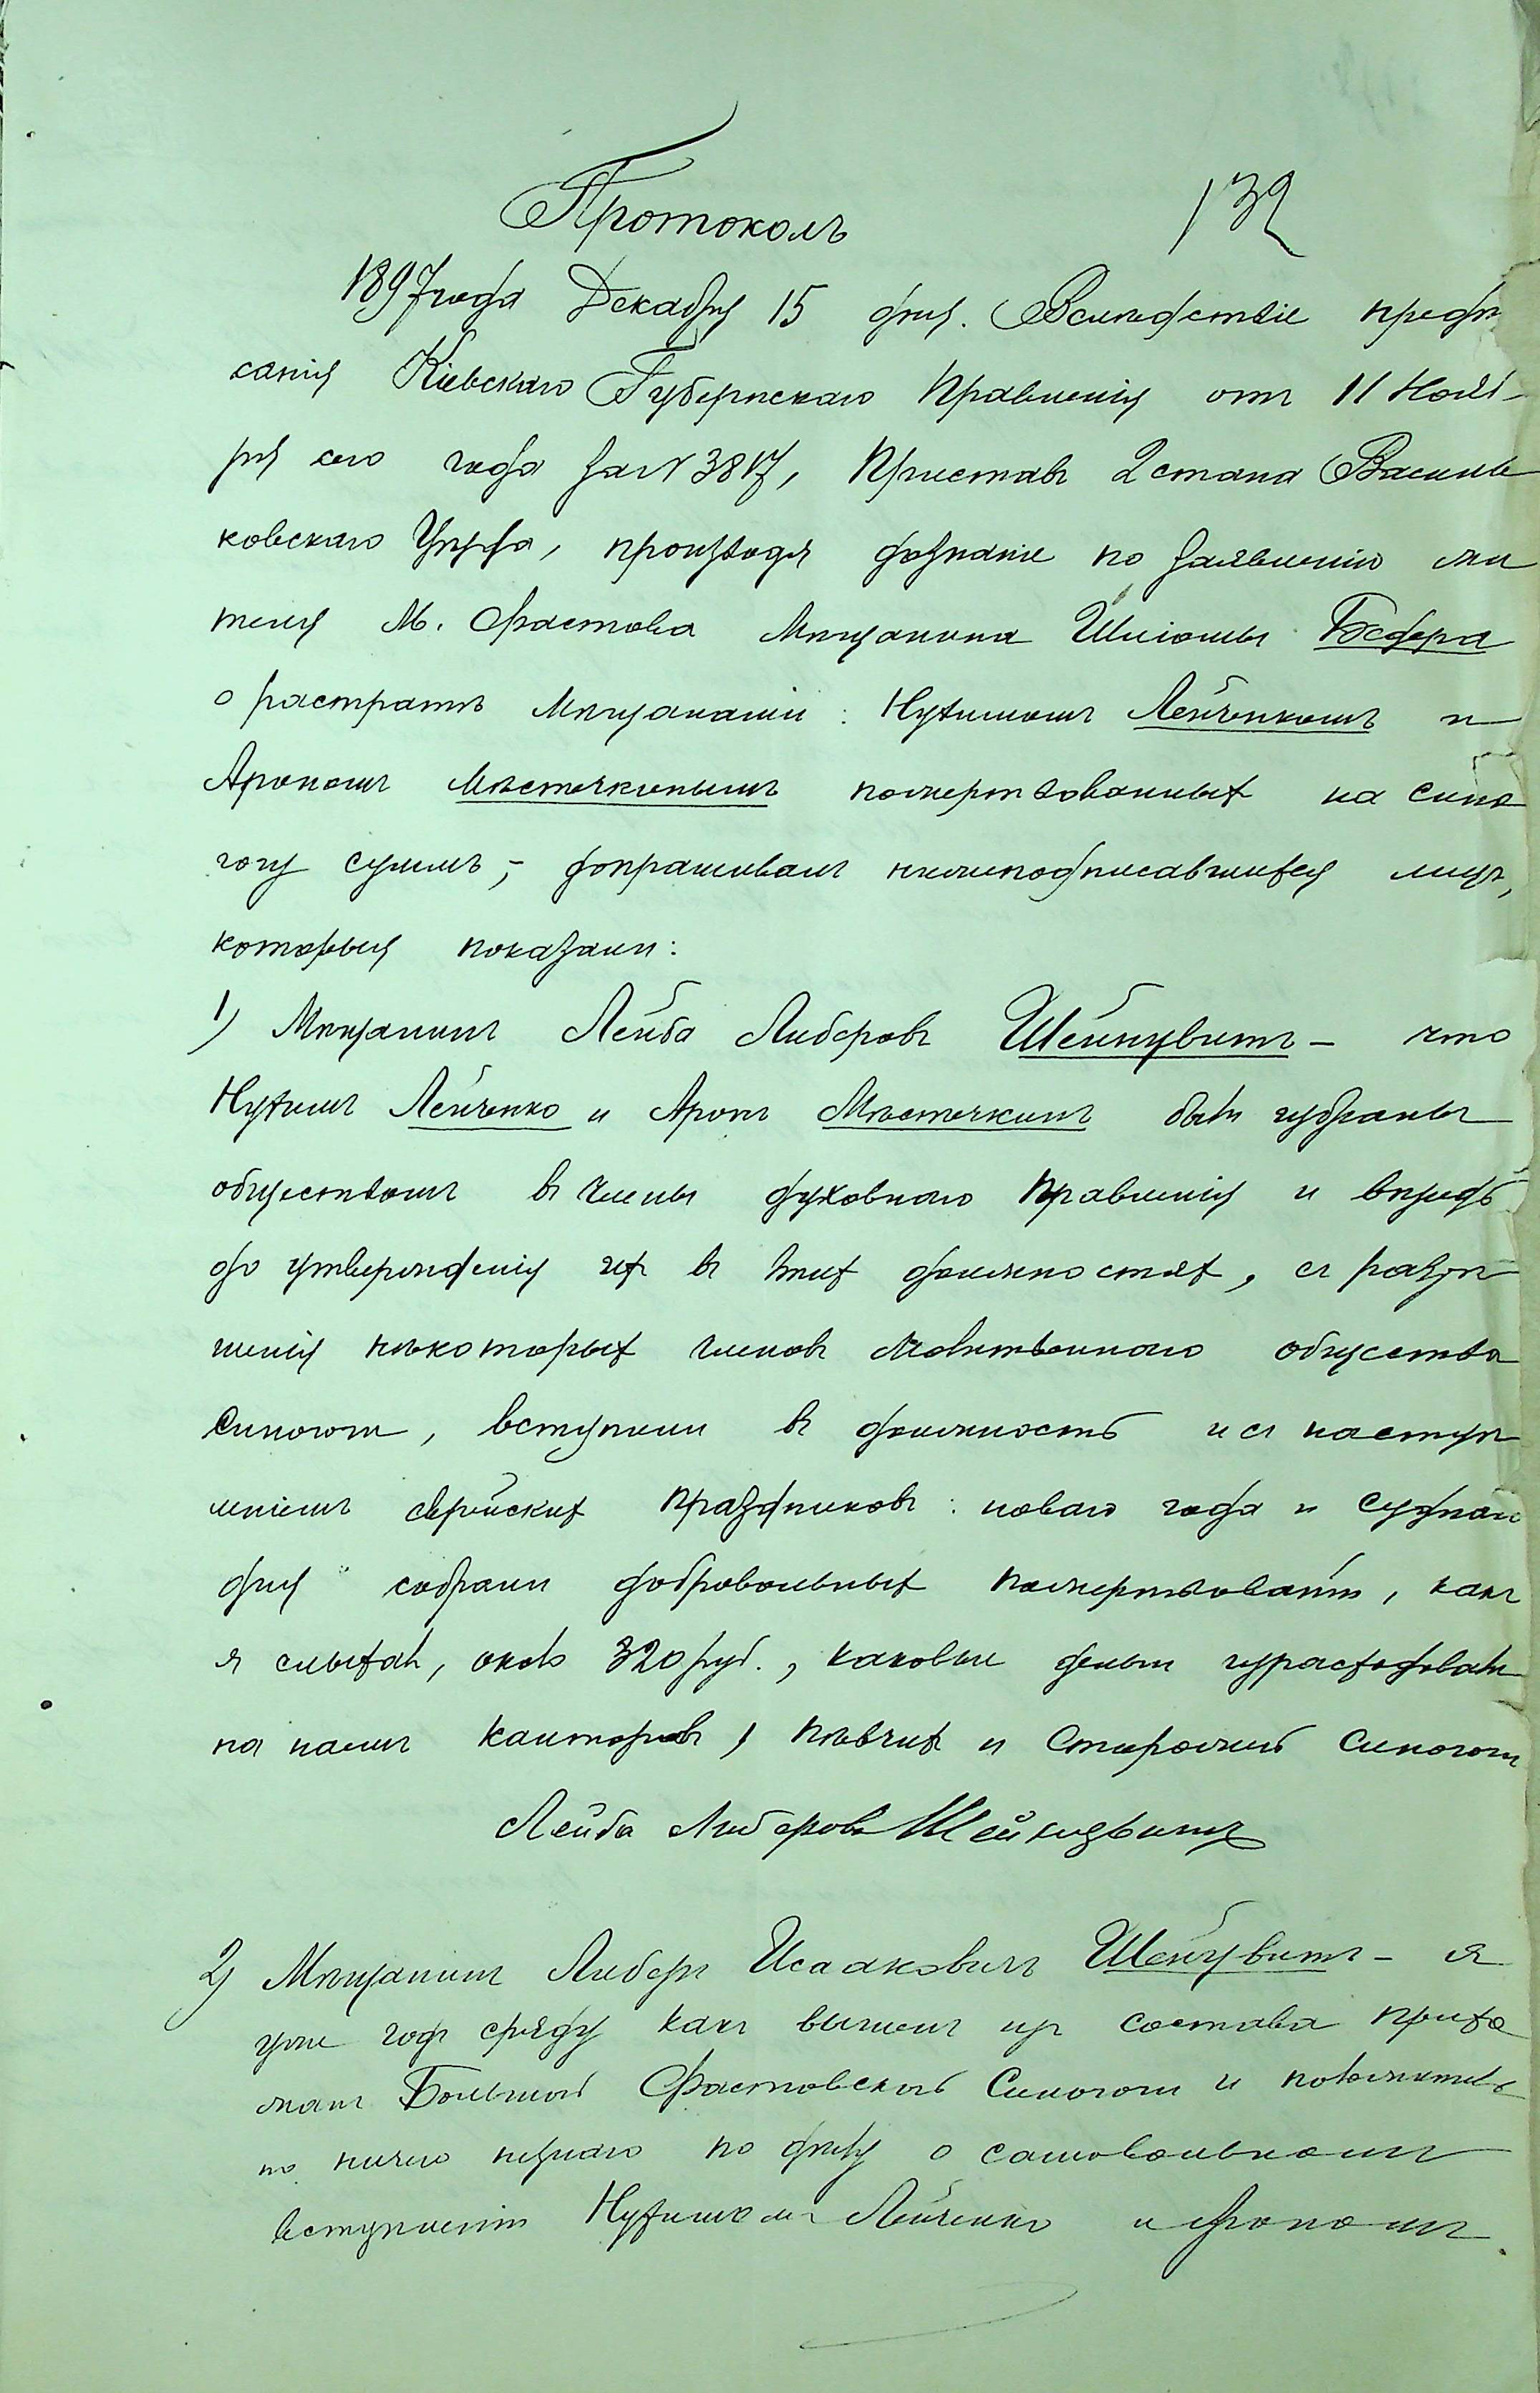 Протоколъ
132
1897 года Декабря 15 дня. Вслѣдствіе предпи
санія Кіевскаго Губернскаго Правленія отъ 11 Нояб-
ря сего года за № 3817, Приставъ 2 стана Василь
ковскаго Уѣзда, производя дознаніе по заявленію жи
теля М. Фастова Мѣщанина Шлiомы
о растратѣ Мѣщанами: Нухимомъ Лейченкомъ и
Арономъ Мѣстечкинымъ пожертвованныхъ на Сина
гогу суммъ, – допрашивалъ нижеподписавшихся лицъ,
которыя показали:
1) Мѣщанинъ Лейба Либеровъ Шейнцвитъ – что
Нухимъ Лейченко и Аронъ Мѣстечкинъ были избраны
обществомъ въ члены духовнаго Правленія и впредь
до утвержденія ихъ въ этихъ должностяхъ, съ разрѣ
шенія нѣкоторыхъ членовъ молитвеннаго общества
Синогоги, вступили въ должность и съ наступ
леніемъ еврейскихъ Праздниковъ: новаго года и Суднаго
дня собрали добровольныхъ пожертвованій, какъ
я слыхалъ, около 320 руб., каковыя деньги израсходовали
на наемъ Канторовъ, пѣвчихъ и Сторожей Синогоги
Лейба Либеровъ Шейнцвитъ
2) Мѣщанинъ Либеръ Исааковичъ Шейнцвитъ – я
уже годъ сряду какъ вышелъ изъ состава прихо
жанъ Большой Фастовской Синогоги и положитель
но ничего незнаю по дѣлу о самовольномъ
вступленіи Нухимомъ Лейченко и Арономъ